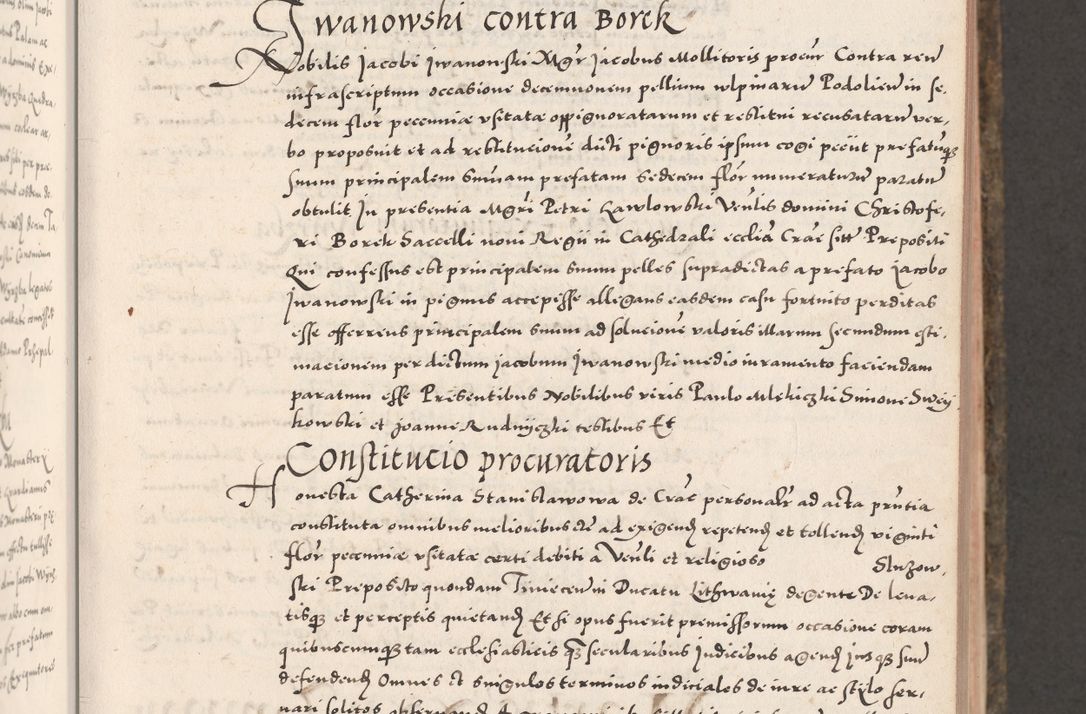 Iwanowski contra Borek
Nobilis Jacobi Iwanowski Mgr Jacobus Mollitoris procur Contra reum
infrascriptum occasione decemnonem pellium wlpinarum Podolien in se,
decem flor pecenniae vsitatae oppignoratarum et restitui recusatarum ver,
bo proposuit et ad restitucionem dicti pignoris ipsum cogi peciit prefatusq
suum principalem summam prefatam sedecem flor numeraturum paratum
obtulit In presentia Mgri Petri Kawlowski Venlis domini Christofe,
ri Borek Saccelli novi Regii in Cathedrali ecclia Crac sitt Prepositi
Qui confessus est principalem suum pelles supradictas a prefato Jacobo
Iwanowski in pignus accepisse allegans easdem casu fortuito perditas
esse offerens principalem suum ad solucionem valoris illarum secundum esti,
macionem per dictum Jacobum Iwanowski medio iuramento faciendam
paratum esse Presentibus Nobilibus viris Paulo Mlekiczki Simone Swey,
kowski et Joanne Rudnyczki testibus Et
Constitucio procuratoris
Honesta Catherina Stanislawowa de Crac personalr ad acta prntia
constituta omnibus melioribus etc ad exigend repetend et tollend viginti
flor pecenniae vsitatae certi debiti a Venli et religioso Sluzow,
ski Preposito quondam Tiniecen in Ducatu Lithwanie degente De leva,
tisq et perceptis quietand Et si opus fuerit premissorum occasione coram
quibuscumq tam ecclesiasticis q secularibus Iudicibus agend iusq suum
defendend Omnes et singulos terminos iudiciales de iure ac stylo ser,
vari solitos observand